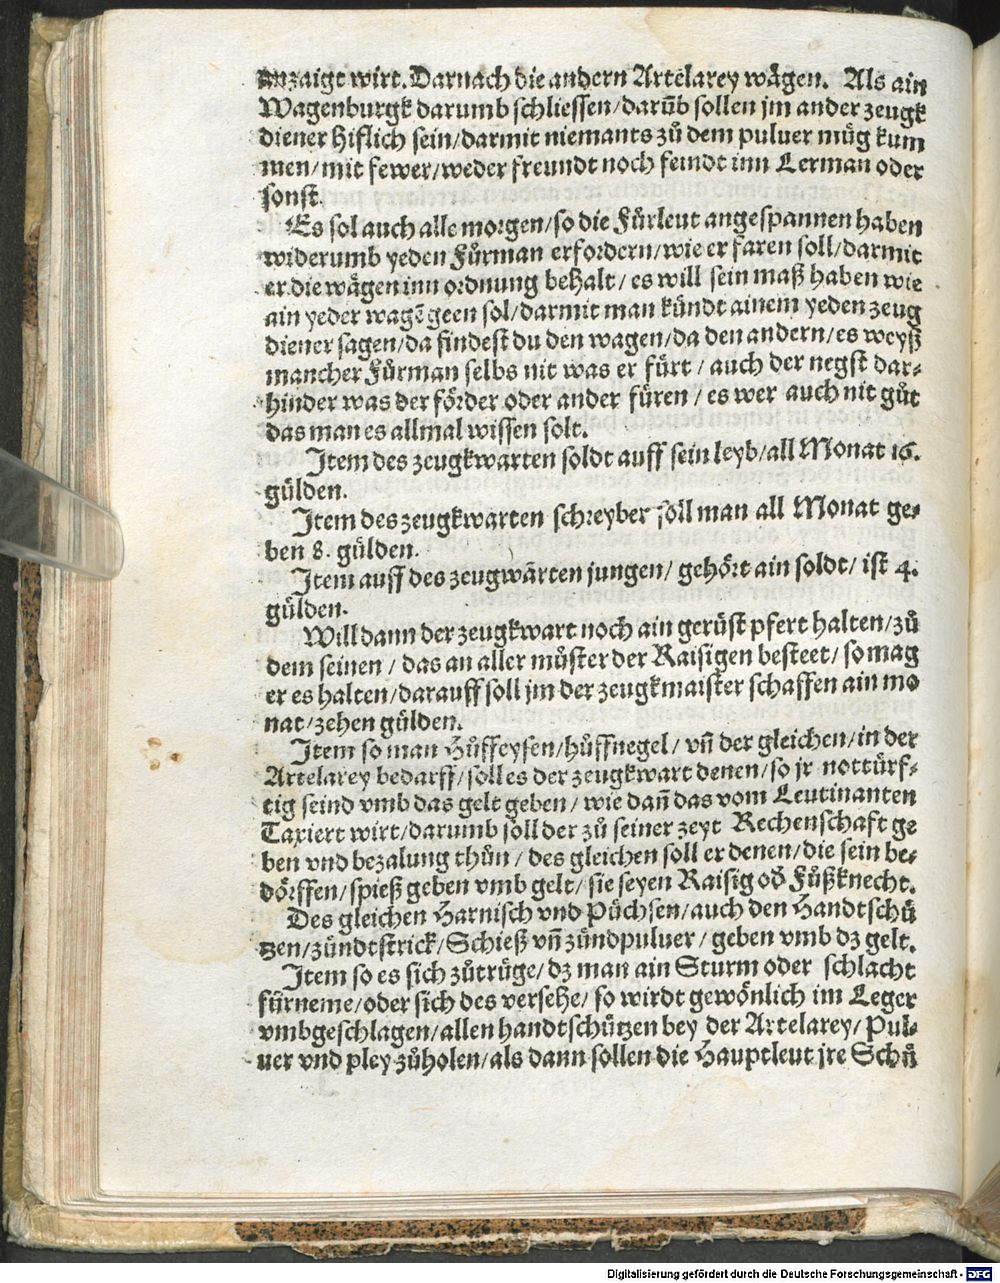 anzaigt wirt. Darnach die andern Artelarey wägen. Als ain
Wagenburgk darumb schliessen/darūb sollen jm ander zeugk
diener hiflich sein/darmit niemants zů dem puluer müg kum
men/mit fewer/weder freundt noch feindt inn Lerman oder
sonst.
Es sol auch alle morgen/so die Fůrleut angespannen haben
widerumb yeden Fůrman erfordern/wie er faren soll/darmit
er die wägen inn ordnung behalt/es will sein maß haben wie
ain yeder wagē geen sol/darmit man kündt ainem yeden zeug
diener sagen/da findest du den wagen/da den andern/es weyß
mancher Fůrman selbs nit was er fürt/auch der negst dar⸗
hinder was der förder oder ander füren/es wer auch nit gůt
das man es allmal wissen solt.
Item des zeugkwarten soldt auff sein leyb/all Monat 16.
gülden.
Item des zeugkwarten schreyber soll man all Monat ge⸗
ben 8. gülden.
Item auff des zeugwärten jungen/gehört ain soldt/ist 4.
gülden.
Will dann der zeugkwart noch ain gerüst pfert halten/zů
dem seinen/das an aller můster der Raisigen besteet/so mag
er es halten/darauff soll jm der zeugkmaister schaffen ain mo
nat/zehen gülden.
Item so man Hůffeysen/hůffnegel/vñ der gleichen/in der
Artelarey bedarff/soll es der zeugkwart denen/so jr nottürf⸗
tig seind vmb das gelt geben/wie dañ das vom Leutinanten
Taxiert wirt/darumb soll der zů seiner zeyt Rechenschaft ge
ben vnd bezalung thůn/des gleichen soll er denen/die sein be⸗
dörffen/spieß geben vmb gelt/sie seyen Raisig od̕ Fůßknecht.
Des gleichen Harnisch vnd Püchsen/auch den Handtschü
tzen/zündtstrick/Schieß vñ zündpuluer/geben vmb dz gelt.
Item so es sich zůtrüge/dz man ain Sturm oder schlacht
fürneme/oder sich des versehe/so wirdt gewönlich im Leger
vmbgeschlagen/allen handtschützen bey der Artelarey/Pul⸗
uer vnd pley zůholen/als dann sollen die Hauptleut jre Schü
Digitalisierung gefördert durch die Deutsche Forschungsgemeinschaft - DFG